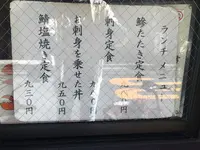 ランチメニュー
鰺たたき定食
刺身定食
お刺身を乗せた丼
九五〇円
鯖塩焼き定食
九三〇円